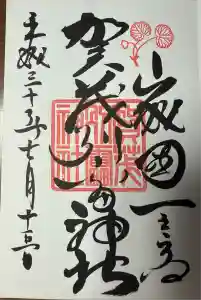 山城國一之宮
賀茂別雷神社
平成三十年七月十三日